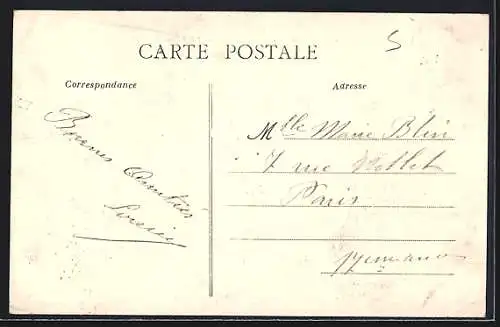 5
CARTE POSTALE
Correspondance
Bonnes Amitiés
Adresse
Mlle Marie Blin
7 rue Nollet
Paris
17em